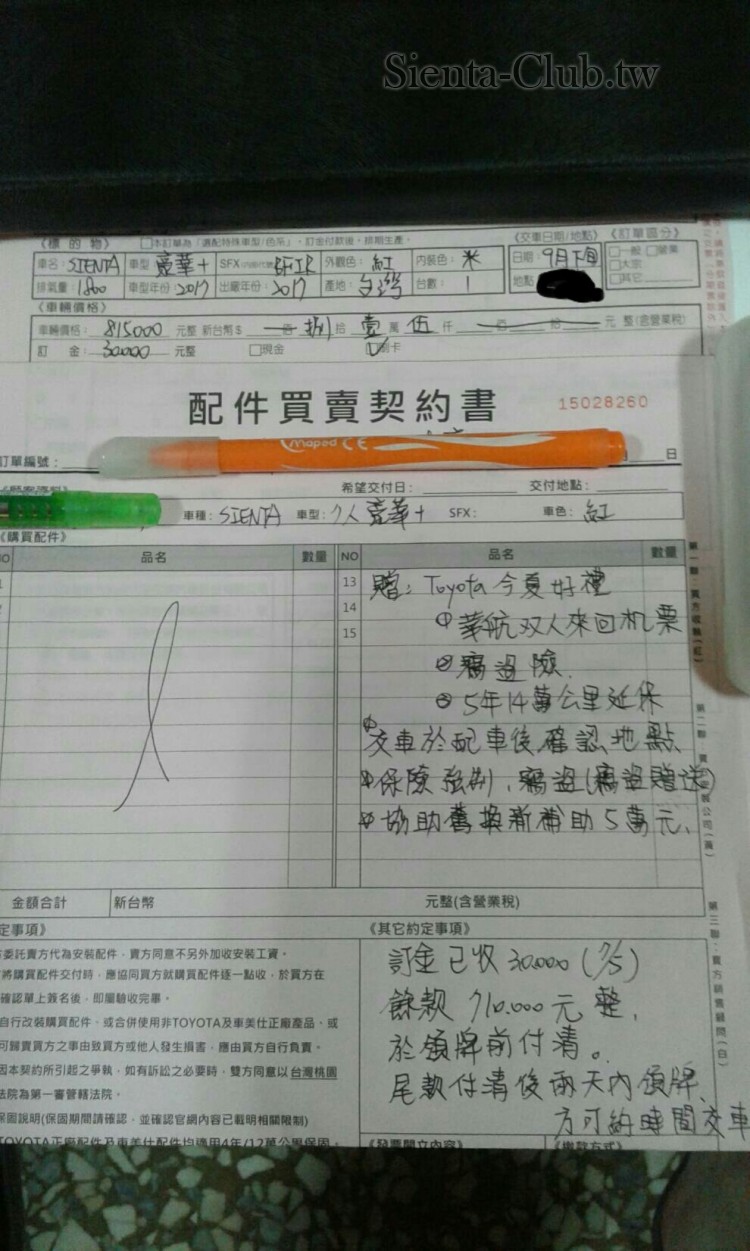 Sienta-Club.tw
《標的物》 □本訂單為「選配特殊車型/色系」,訂金付款後,排期生產。 《交車日期/地點》 《訂單區分》
車名:SIENTA 車型 豪華+ SFX 外觀色:紅 內裝色:米 日期:9月下旬 □一般 □營業
排氣量:1800 車型年份:2017 出廠年份:2017 產地:台灣 台數:1 地點 □大宗
□其它
《車輛價格》
車輛價格:815000 元整 新台幣$ 佰 捌 拾 壹 萬 伍 仟 佰 拾 元 整(含營業稅)
訂 金:30000 元整 □現金 刷卡
配件買賣契約書 15028260
訂單編號: 日
希望交付日: 交付地點:
車種:SIENTA 車型:7人豪華+ SFX: 車色:紅
《購買配件》
NO 品名 數量 NO 品名 數量
13 贈:Toyota今夏好禮
14 ①華航双人來回机票
15 ②竊盜險.
③5年14萬公里延保
交車於配車後確認地點
保險強制、竊盜(竊盜贈送)
協助舊換新補助5萬元、
金額合計 新台幣 元整(含營業稅)
定事項》
委託賣方代為安裝配件,賣方同意不另外加收安裝工資。
將購買配件交付時,應協同買方就購買配件逐一點收,於買方在
確認單上簽名後,即屬驗收完畢。
自行改裝購買配件、或合併使用非TOYOTA及車美仕正廠產品,或
可歸責買方之事由致買方或他人發生損害,應由買方自行負責。
因本契約所引起之爭執,如有訴訟之必要時,雙方同意以台灣桃園
法院為第一審管轄法院。
保固說明(保固期間請確認,並確認官網內容已載明相關限制)
TOYOTA正廠配件及車美仕配件均適用4年/12萬公里保固,
《其它約定事項》
訂金已收30.000(7/5)
餘款710.000元整,
於領牌前付清。
尾款付清後兩天內領牌、
方可約時間交車
《發票開立內容》 《繳款方式》
第一聯:買方收執(紅)
第三聯:賣方銷售顧問(白)